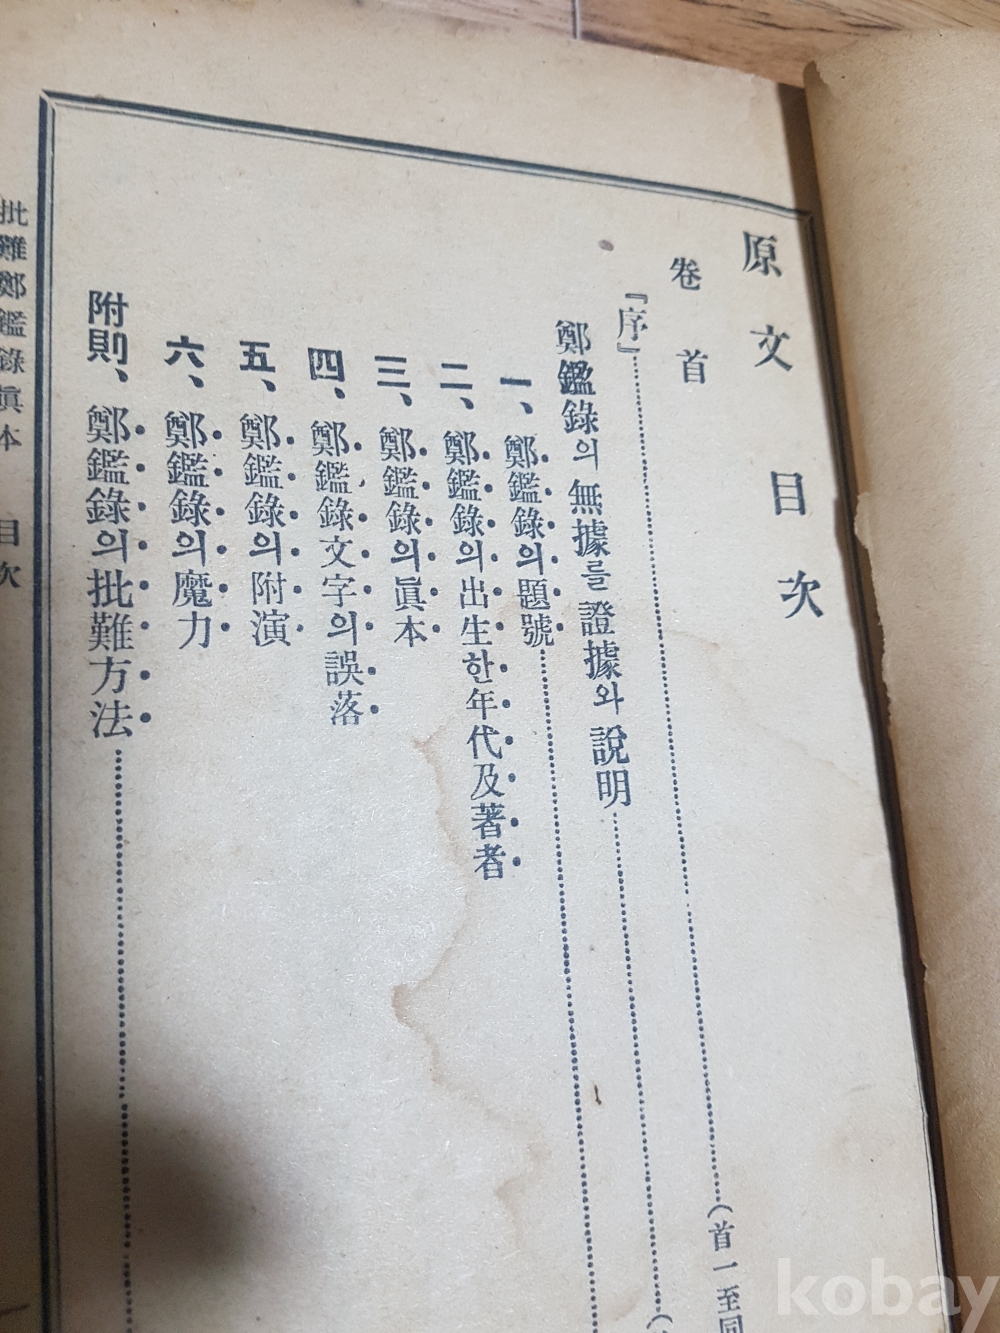 原文目次
卷首
『序』
(首一至同
鄭鑑錄의 無據를 證據와 說明
一、鄭鑑錄의題號
二、鄭鑑錄의出生한年代及著者
三、鄭鑑錄의眞本
四、鄭鑑錄文字의誤落
五、鄭鑑錄의附演
六、鄭鑑錄의魔力
附則、鄭鑑錄의批難方法
批難鄭鑑錄眞本 目次
kobay